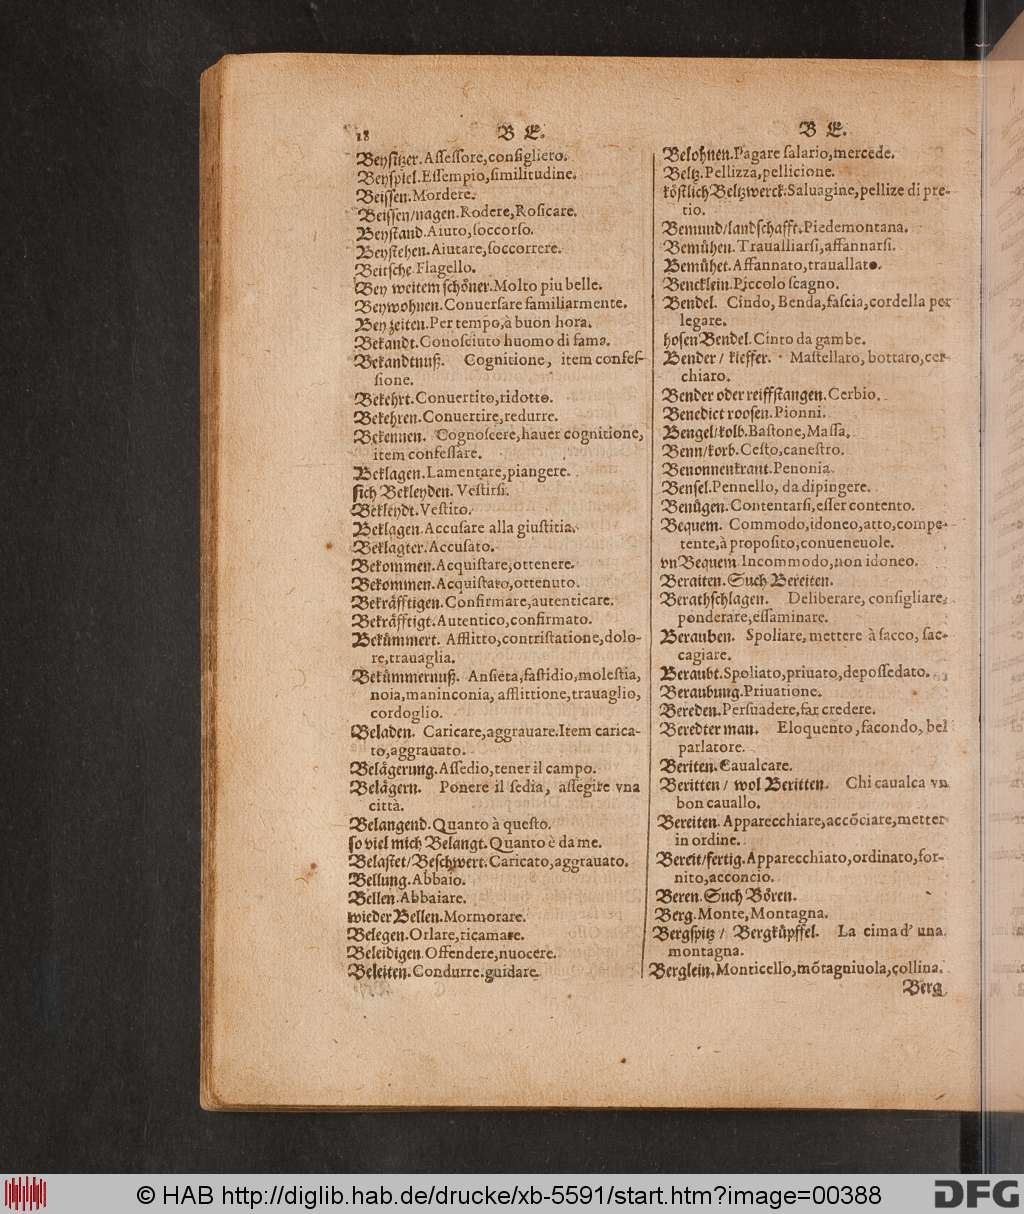 18
B E.
Beysitzer. Aſſeſſore, conſigliero.
Beyspiel. Eſſempio, ſimilitudine.
Beissen. Mordere.
Beissen/nagen. Rodere, Roſicare.
Beystand. Aiuto, ſoccorſo.
Beystehen. Aiutare, ſoccorrere.
Beitsche. Flagello.
Bey weitem schöner. Molto piu belle.
Beywohnen. Conuerſare familiarmente.
Bey zeiten. Per tempo, à buon hora.
Bekandt. Conoſciuto huomo di fama.
Bekandtnuß. Cognitione, item confeſ-
ſione.
Bekehrt. Conuertito, ridotto.
Bekehren. Conuertire, redurre.
Bekennen. Cognoſcere, hauer cognitione,
item confeſſare.
Beklagen. Lamentare, piangere.
sich Bekleyden. Veſtirſi.
Bekleydt. Veſtito.
Beklagen. Accuſare alla giuſtitia.
Beklagter. Accuſato.
Bekommen. Acquiſtare, ottenere.
Bekommen. Acquiſtato, ottenuto.
Bekräfftigen. Confirmare, autenticare.
Bekräfftigt. Autentico, confirmato.
Bekümmert. Afflitto, contriſtatione, dolo-
re, trauaglia.
Bekümmernuß. Anſieta, faſtidio, moleſtia,
noia, maninconia, afflittione, trauaglio,
cordoglio.
Beladen. Caricare, aggrauare. Item carica-
to, aggrauato.
Belägerung. Aſſedio, tener il campo.
Belägern. Ponere il ſedia, aſſegire vna
città.
Belangend. Quanto à queſto.
so viel mich Belangt. Quanto è da me.
Belastet/Beschwert. Caricato, aggrauato.
Bellung. Abbaio.
Bellen. Abbaiare.
wieder Bellen. Mormorare.
Belegen. Orlare, ricamare.
Beleidigen. Offendere, nuocere.
Beleiten. Condurre, guidare.
B E.
Belohnen. Pagare ſalario, mercede.
Beltz. Pellizza, pellicione.
köstlich Beltzwerck. Saluagine, pellize di pre-
tio.
Bemund/landschafft. Piedemontana.
Bemühen. Traualliarſi, affannarſi.
Bemühet. Affannato, trauallato.
Bencklein. Piccolo ſcagno.
Bendel. Cindo, Benda, faſcia, cordella per
legare.
hosen Bendel. Cinto da gambe.
Bender / kieffer. Maſtellaro, bottaro, cer-
chiaro.
Bender oder reiffstangen. Cerbio.
Benedict roosen. Pionni.
Bengel/kolb. Baſtone, Maſſa.
Benn/korb. Ceſto, caneſtro.
Benonnenkraut. Penonia.
Bensel. Pennello, da dipingere.
Benügen. Contentarſi, eſſer contento.
Bequem. Commodo, idoneo, atto, compe-
tente, à propoſito, conueneuole.
vn Bequem. Incommodo, non idoneo.
Beraiten. Such Bereiten.
Berathschlagen. Deliberare, conſigliare,
ponderare, eſſaminare.
Berauben. Spoliare, mettere à ſacco, ſac-
cagiare.
Beraubt. Spoliato, priuato, depoſſedato.
Beraubung. Priuatione.
Bereden. Perſuadere, far credere.
Beredter man. Eloquento, facondo, bel
parlatore.
Beriten. Caualcare.
Beritten / wol Beritten. Chi caualca vn
bon cauallo.
Bereiten. Apparecchiare, accōciare, metter
in ordine.
Bereit/fertig. Apparecchiato, ordinato, for-
nito, acconcio.
Beren. Such Bören.
Berg. Monte, Montagna.
Bergspitz / Bergküpffel. La cima d' una
montagna.
Berglein. Monticello, mōtagniuola, collina.
Berg
© HAB http://diglib.hab.de/drucke/xb-5591/start.htm?image=00388
DFG